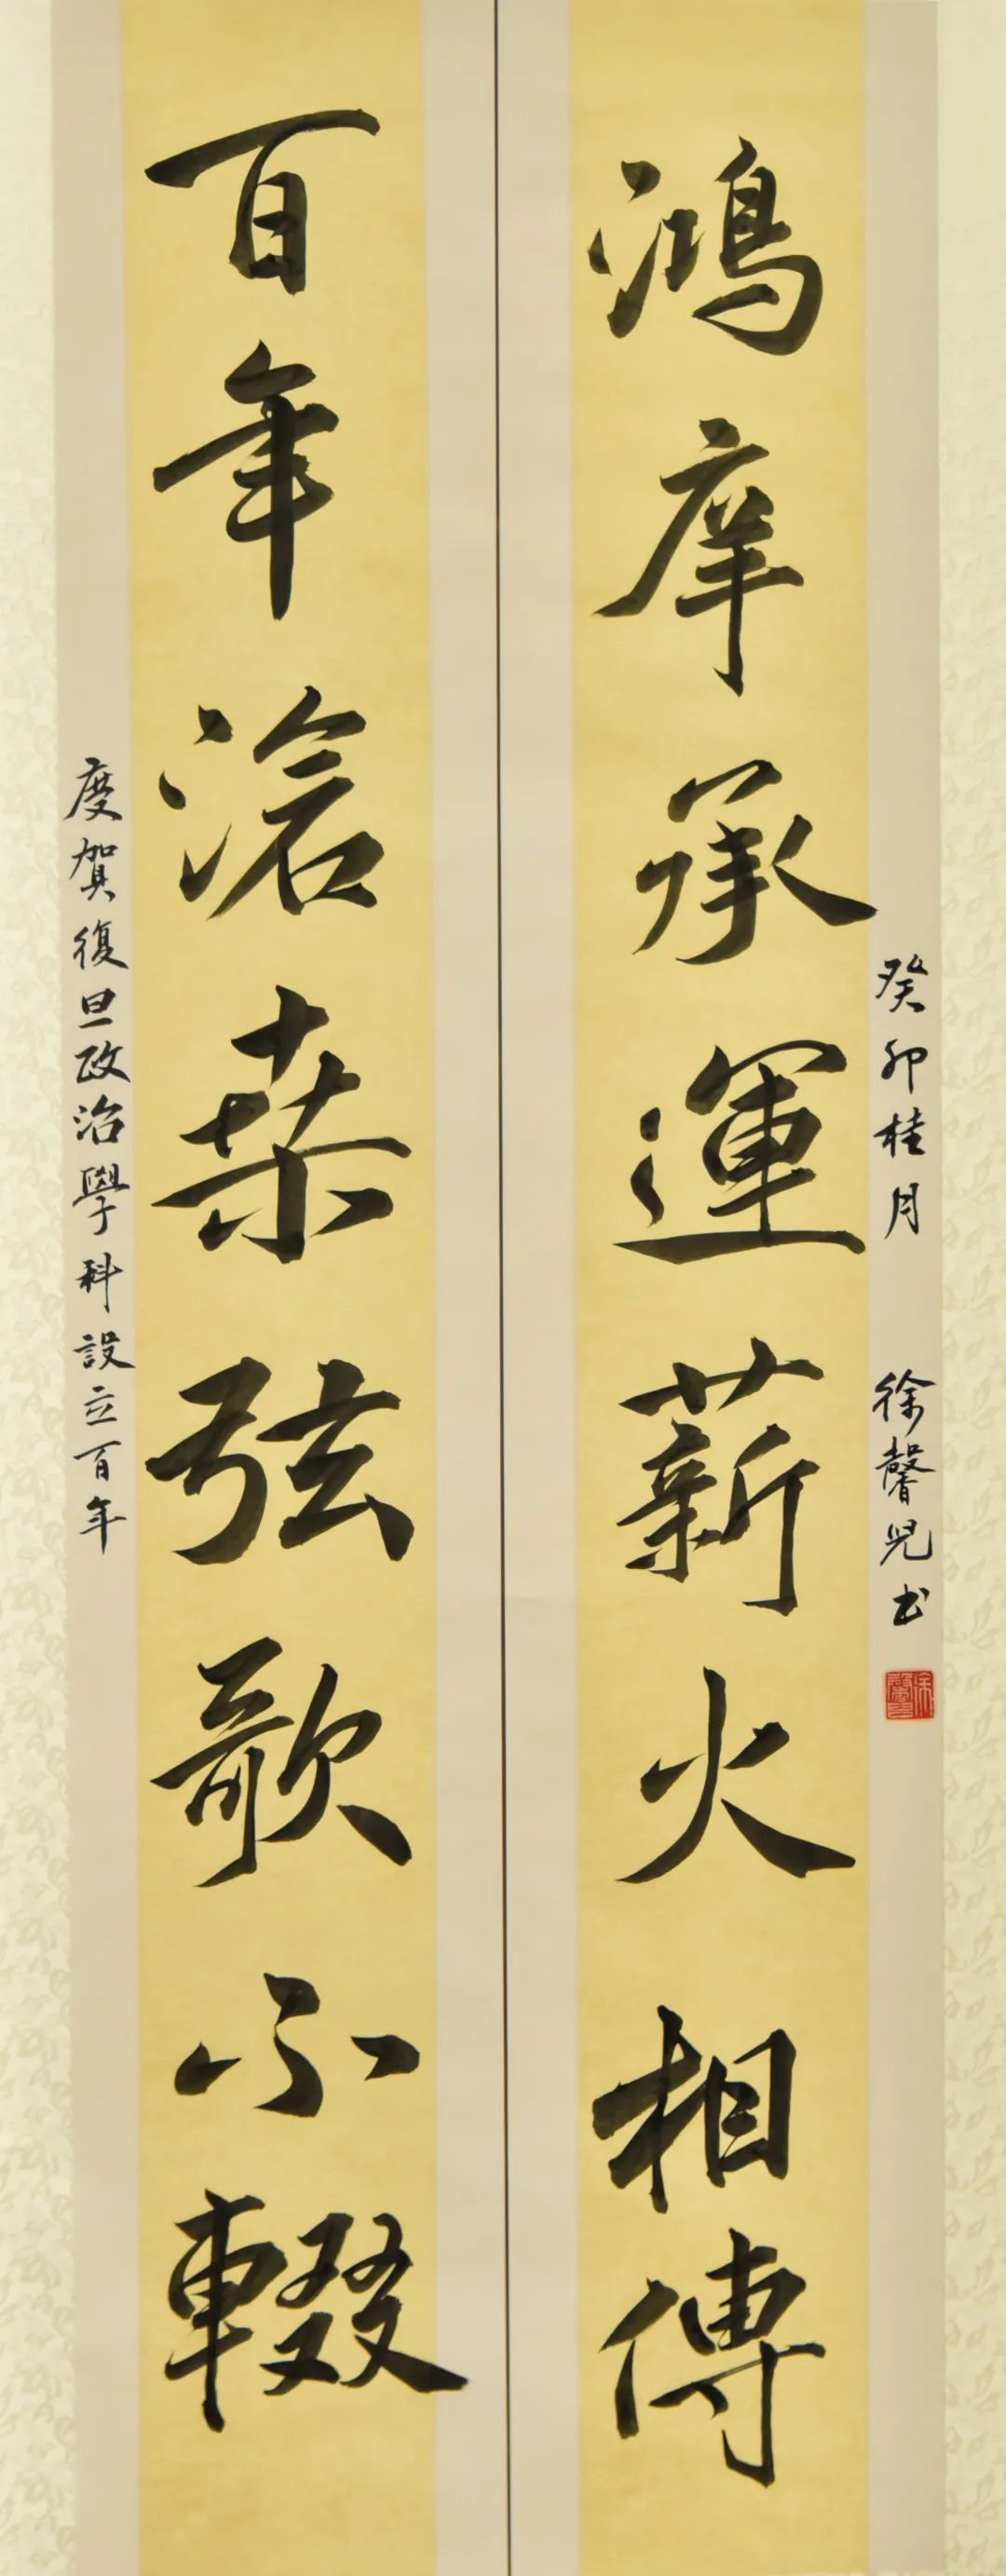 慶賀復旦政治學科設立百年
百年滄桒弦歌不輟
鴻庠承運薪火相傳
癸卯桂月 徐馨兒书